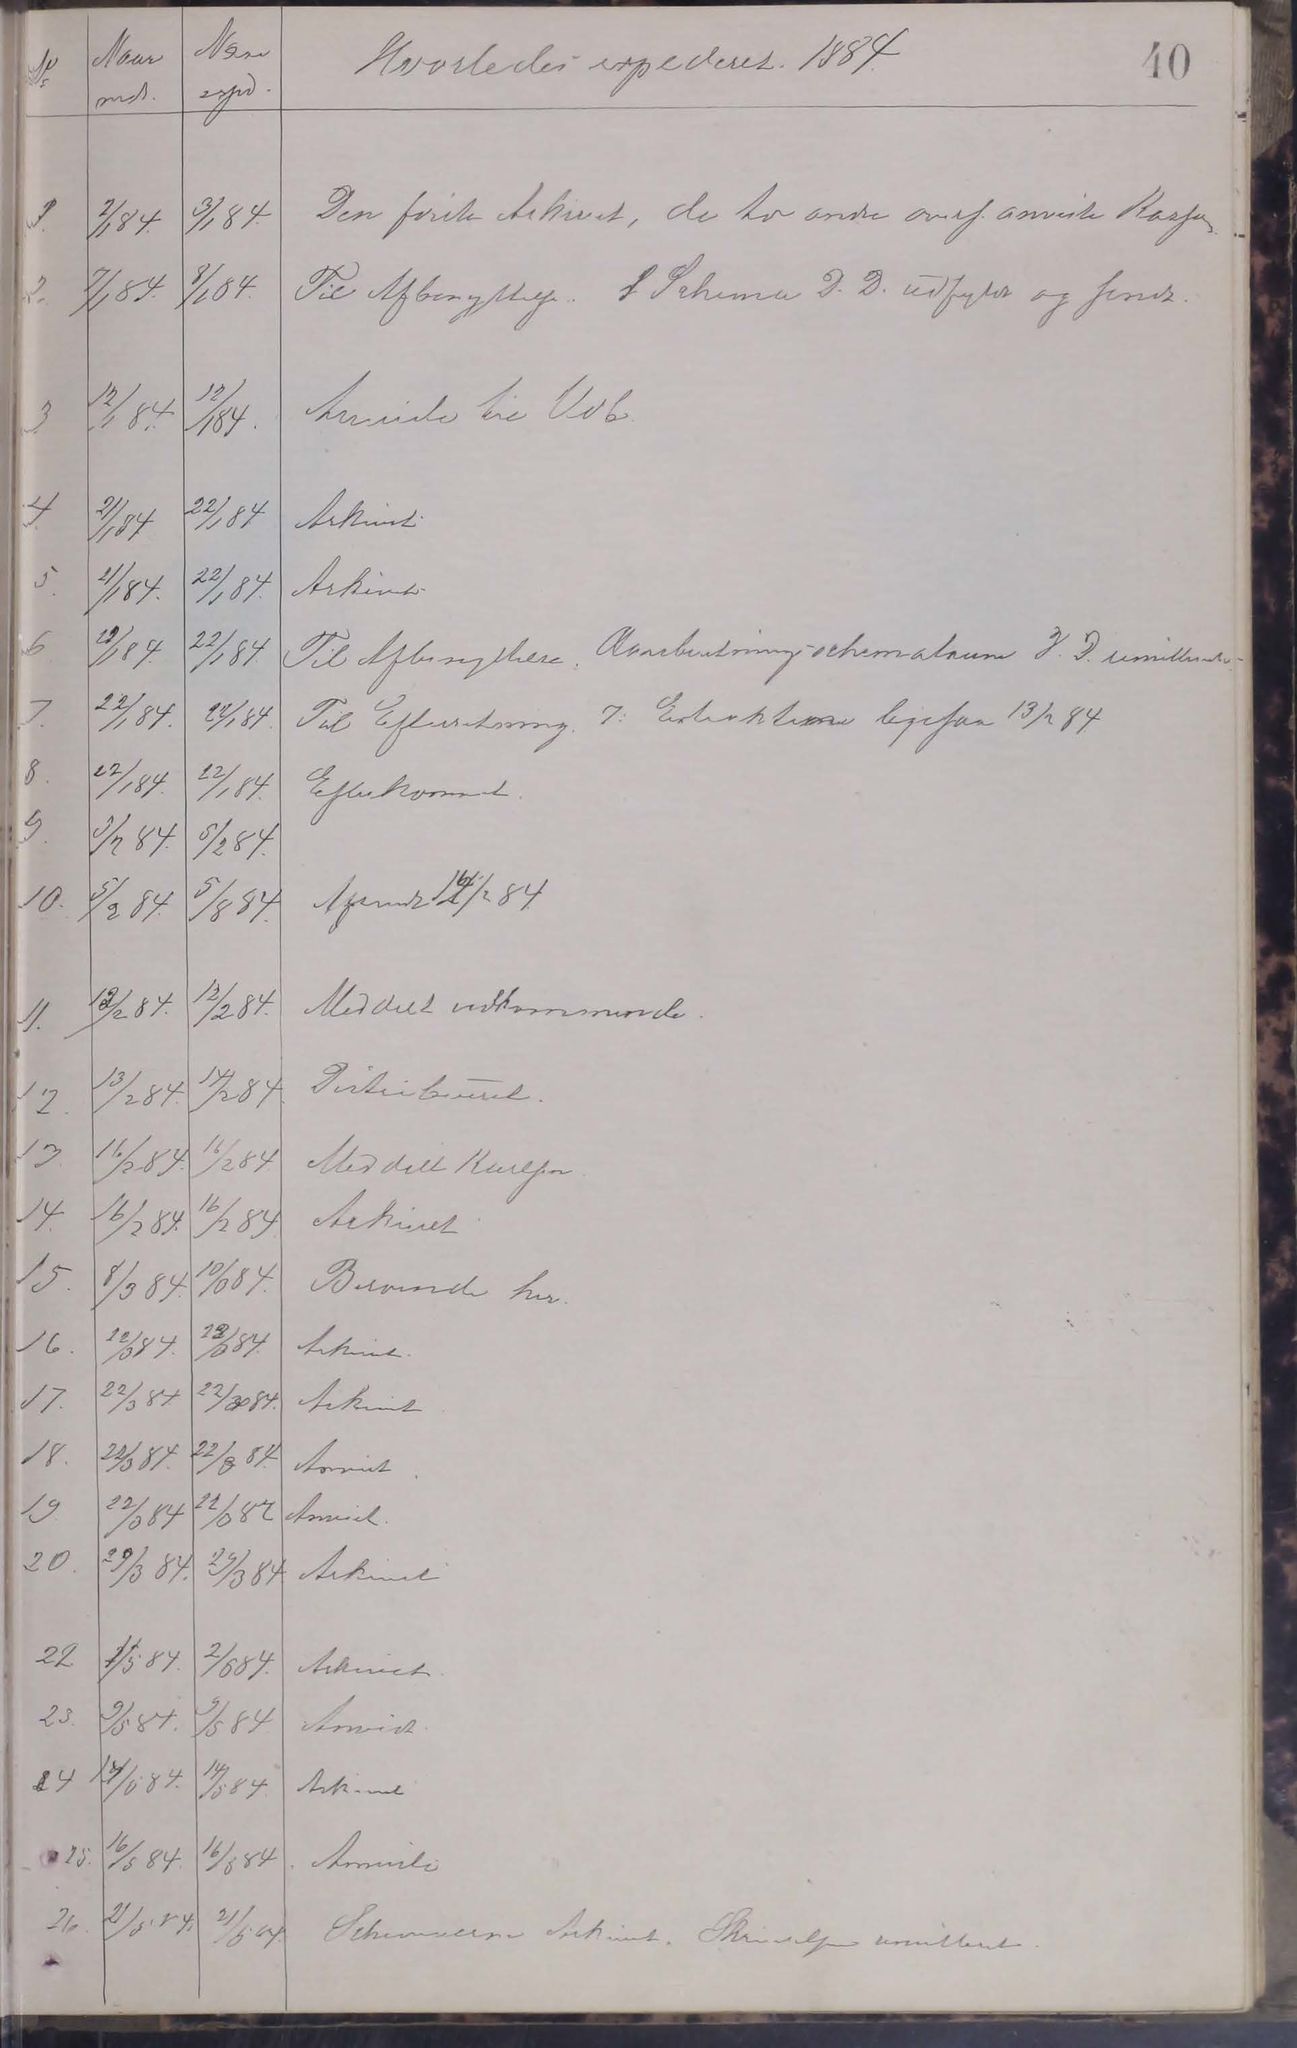 No Naar mdt. Naar expd. Hvorledes expederet. 1884. 40
1. 2/1 84. 3/1 84. Den første Arkivet, de to andre overf. anviste
2. 7/1 84. 8/1 84. Til Afbenyttelse. Schema D. D. udfyldt og sendt.
3 12/1 84. 12/1 84. Anviste til Udb.
4 21/1 84 22/1 84 Arkivet
5. 21/1 84. 22/1 84. Arkivet
6 84. 22/1 84. Til Afbenyttelse.
7. 22/1 84. 22/1 84. Til Efterretning. 13/2 84
8. 22/1 84. 22/1 84. Efterkommet.
9. 3/2 84. 5/2 84.
10. 5/2 84. 5/8 84. Afsendt /2 84.
11. 12/2 84. 12/2 84. Meddelt vedkommende.
12. 13/2 84. 14/2 84. Distribueret.
13. 16/2 84. 16/2 84. Meddelt
14. 16/2 84. 16/2 84. Arkivet
15. 8/3 84. 10/3 84. Beroende her.
16. 22/3 84. 22/3 84. Arkivet.
17. 22/3 84 22/3 84. Arkivet
18. 22/3 84. 22/3 84. Anvist.
19 22/3 84 22/3 84 Anvist.
20. 29/3 84. 29/3 84 Arkivet
22 1/5 84. 2/5 84. Arkivet.
23. 9/5 84. 9/5 84. Anvist.
24 14/5 84. 14/5 84. Arkivet
25. 16/5 84. 16/5 84. Anviste
26. 21/5 84. 21/5 84. Schemaerne Arkivet.